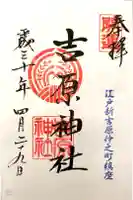 奉拝
江戸新吉原仲之町鎮座
吉原神社
平成三十年 四月二十九日